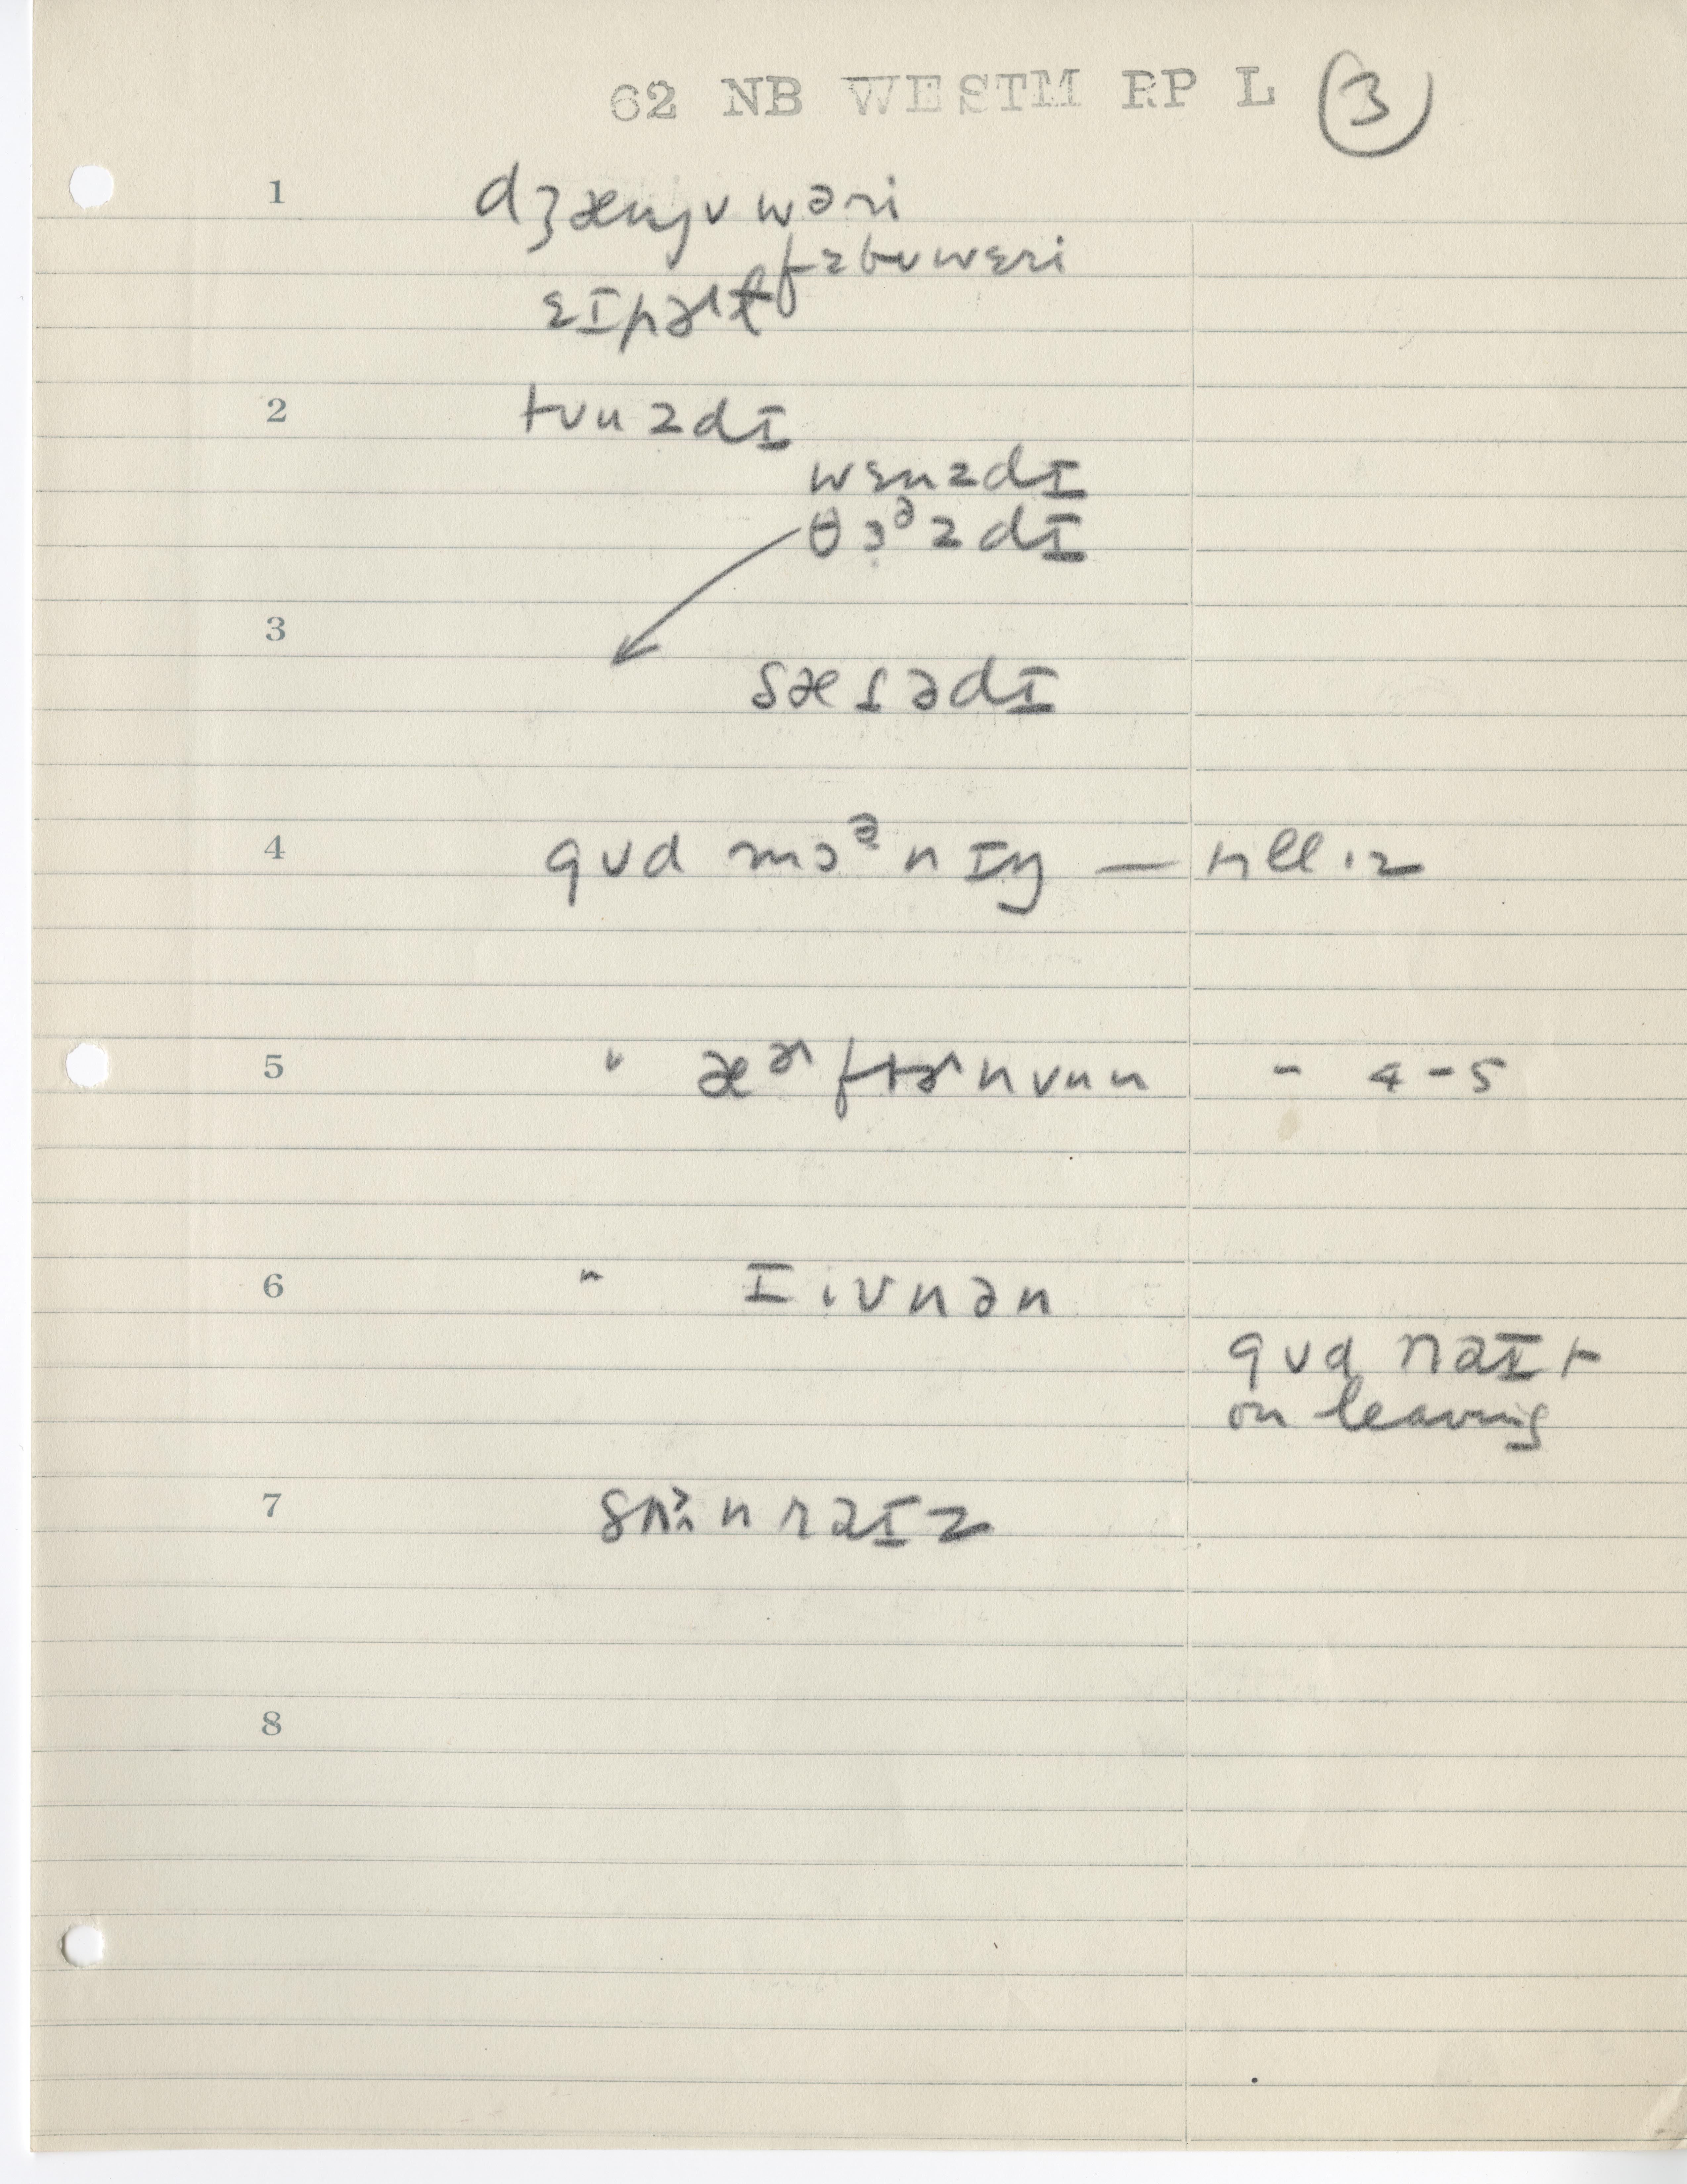 62 NB WESTM RP L ③
1 dʒænjʊwəri
fɛbʊwɛri
ɛɪpɚɫ
2 tʊuzdɪ
wɛnzdɪ
θɜᵊzdɪ
3
sæɾədɪ
4 gʊd mɔᵊnɪŋ —
5 " æᵊftɚnʊun - 4-5
6 " ɪivnən
gʊd naɪt
on leaving
7 raɪz
8